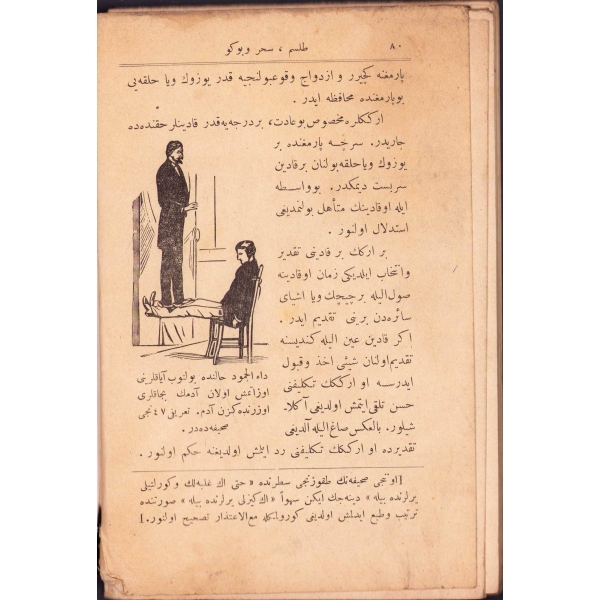 ٨٠
طلسم ، سحر وبوكو
پارمغنه كچيرر و ازدواج وقوعبولنجيه قدر يوزوك ويا حلقه‌يى
بوپارمغنده محافظه ايدر .
اركككلره مخصوص بوعادت، بر درجه‌يه‌قدر قادينلر حقنده‌ده
جاريدر. سرچه پارمغنده بر
يوزوك وياحلقه‌بولنان برقادين
سربست ديمكدر. بوواسطه
ايله اوقادينك متأهل بولنمديغى
استدلال اولنور .
بر ارکك بر قادينى تقدير
وانتخاب ايلديكى زمان اوقادينه
صول‌اليله برچيچك ويا اشياى
سائره‌دن برينى تقديم ايدر .
اكر قادين عين اليله كنديسنه
تقديم‌اولنان شيئى اخذ وقبول
ايدرسه او ارككك تكليفنى
حسن تلقى ايتمش اولديغى آكلا-
شيلور. بالعكس صاغ‌اليله آلديغى
تقديرده او ارككك تكليفنى رد ايتمش اولديغنه حكم اولنور .
داء الجمود حالنده بولنوب آياقلرينى
اوزاتمش اولان آدمك بجاقلرى
اوزرنده‌كزن آدم. تعريفى ٤٧ نجى
صحيفه‌ده‌در .
[اونجى صحيفه‌نك طقوزنجى سطرنده « حتى اك غلبه‌لك وكورلتيلى
يرلرنده بيله » دينه‌جك ايكن سهواً « اك‌كيزلى يرلرنده بيله » صورتنده
ترتيب وطبع ايدلمش اولديغى كورولمكله مع‌الاعتذار تصحيح اولنور.]